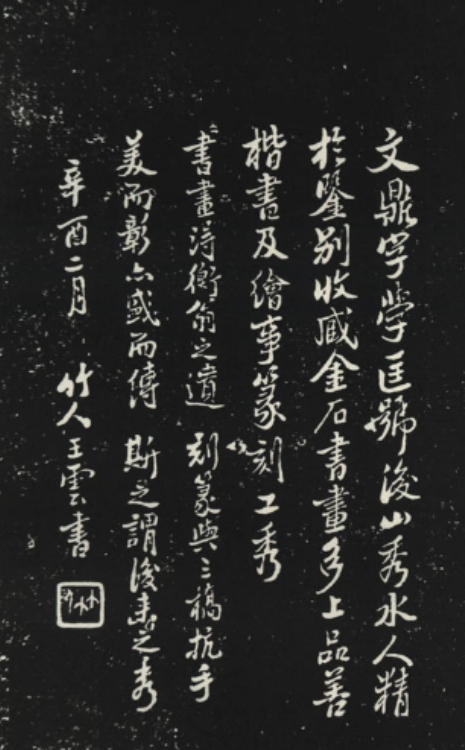 文鼎字學匡號後山秀水人精
於鑒別收藏金石書畫多上品善
楷書及繪事篆刻工秀
書畫得衡翁之遺 刻篆與三橋抗手
美而彰亦盛而傳 斯之謂後來之秀
辛酉二月 竹人王雲書